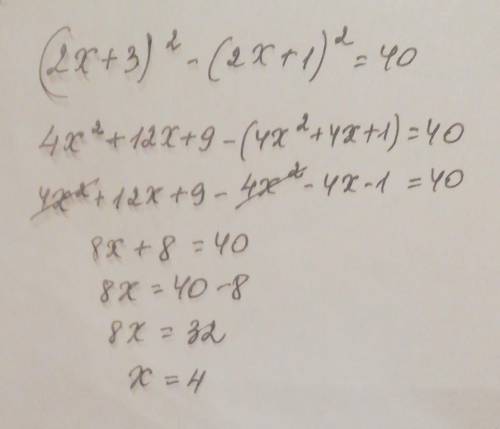 (2x+3)² - (2x+1)² = 40
4x² + 12x + 9 - (4x² + 4x + 1) = 40
4x² + 12x + 9 - 4x² - 4x - 1 = 40
8x + 8 = 40
8x = 40 - 8
8x = 32
x = 4